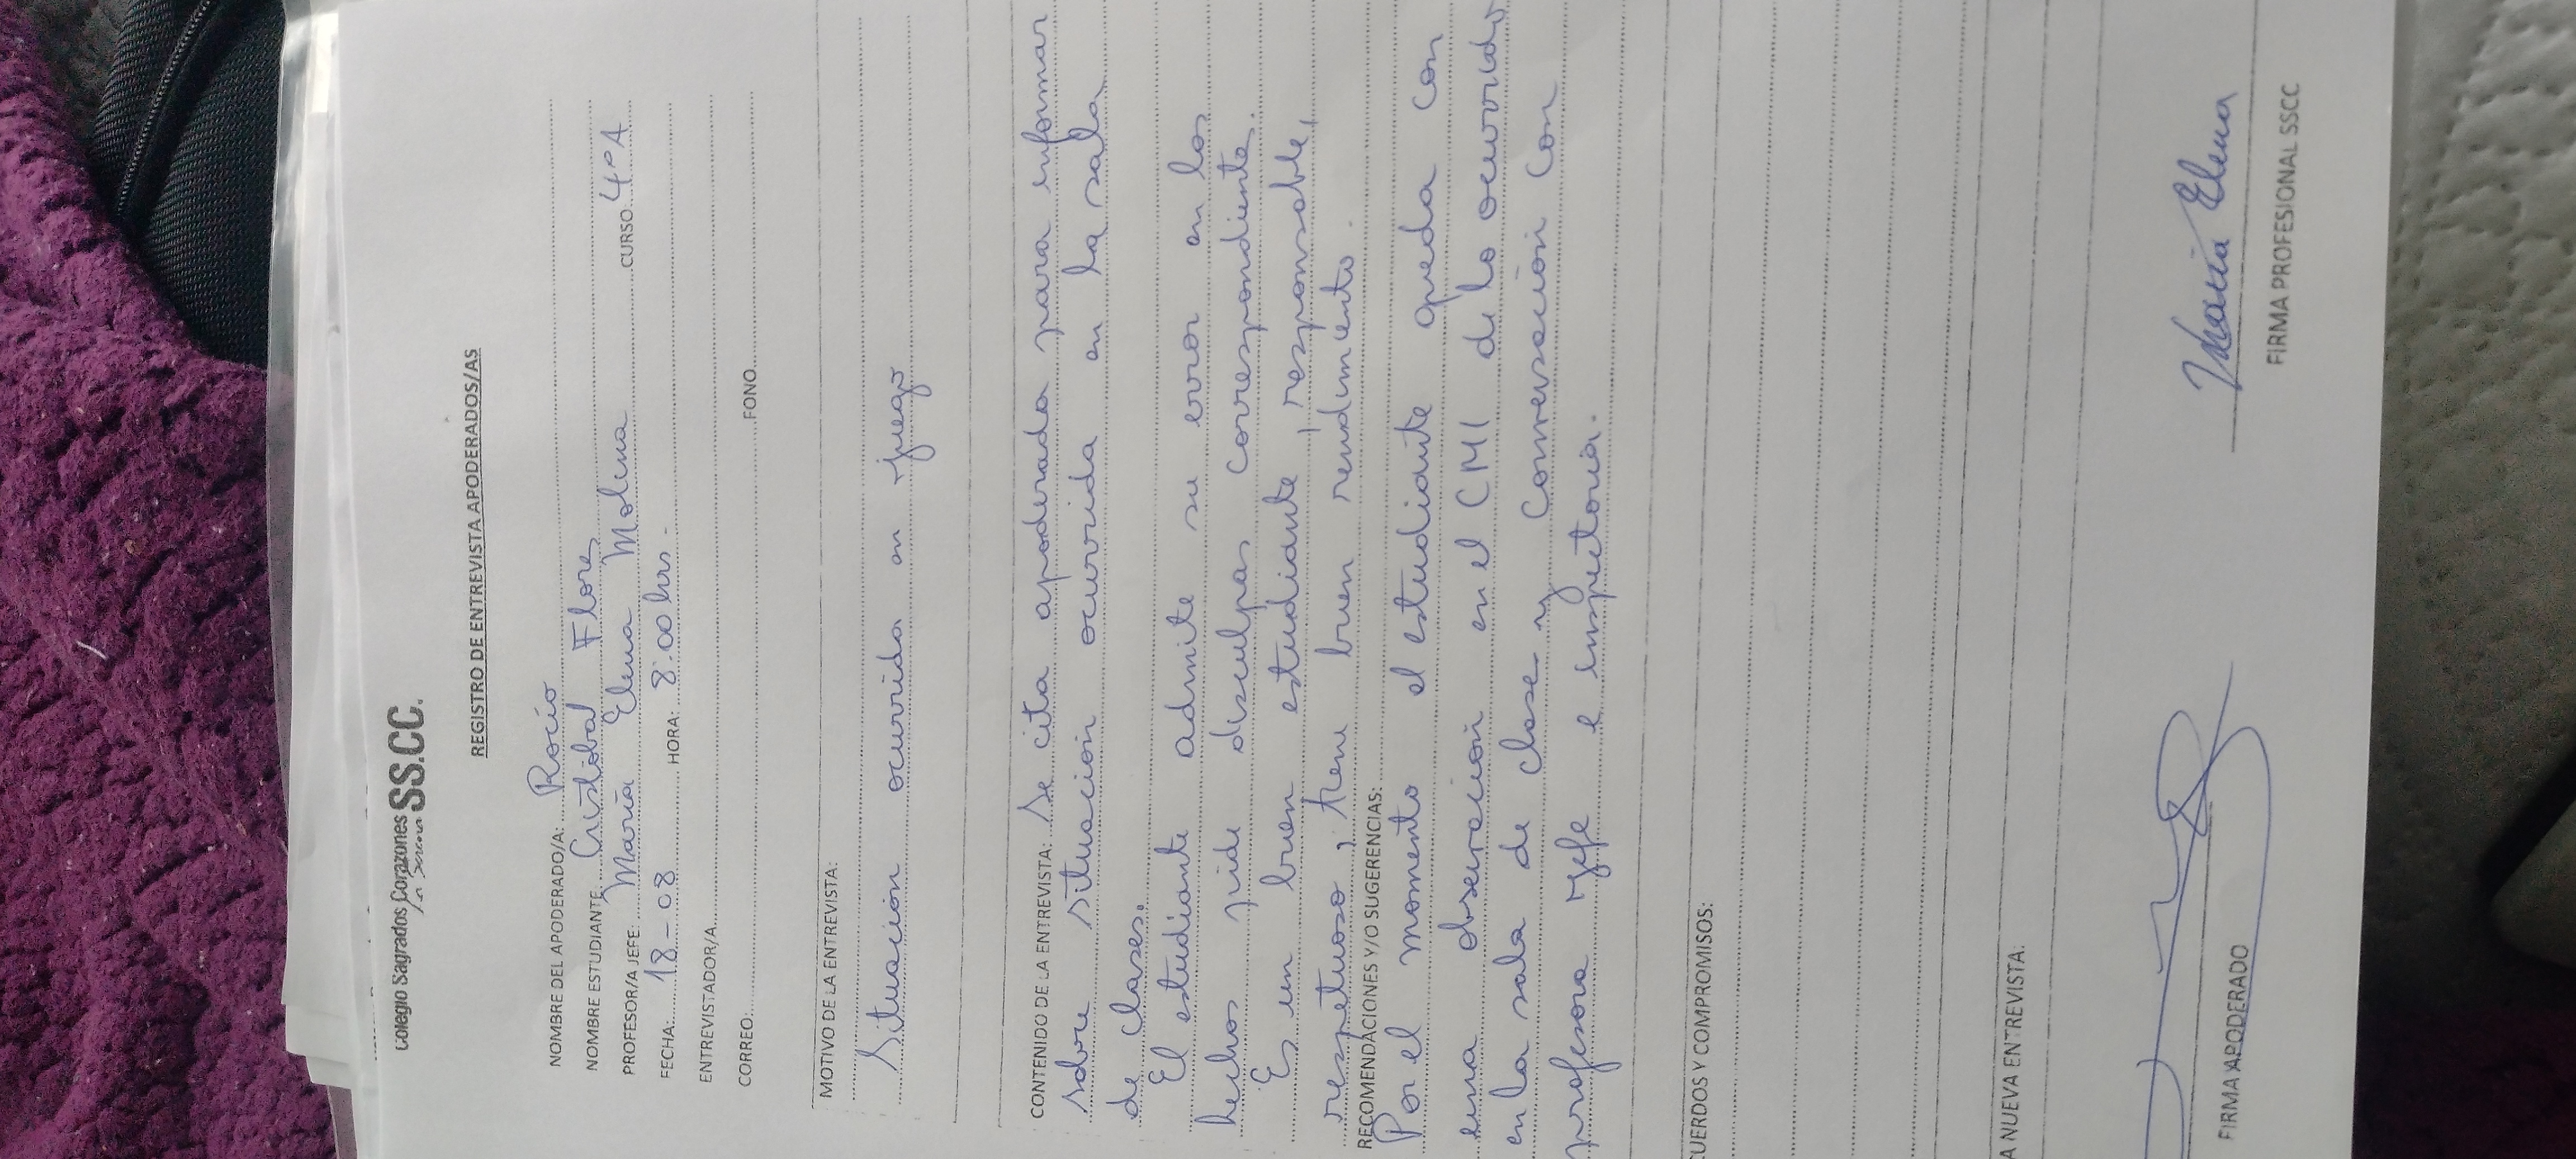 Colegio Sagrados Corazones SS.CC.
La Serena
REGISTRO DE ENTREVISTA APODERADOS/AS
NOMBRE DEL APODERADO/A: Rocío
NOMBRE ESTUDIANTE Cristóbal Flores
PROFESOR/A JEFE: María Elena Molina CURSO: 4ºA
FECHA: 18-08 HORA: 8:00 hrs.
ENTREVISTADOR/A
CORREO: FONO.
MOTIVO DE LA ENTREVISTA:
Situación ocurrida en juego
CONTENIDO DE LA ENTREVISTA: Se cita apoderada para informar
sobre situación ocurrida en la sala
de clases.
El estudiante admite su error en los
hechos pide disculpas correspondiente.
Es un buen estudiante, responsable,
respetuoso, tiene buen rendimiento.
RECOMENDACIONES Y/O SUGERENCIAS:
Por el momento el estudiante queda con
una observación en el CMI de lo ocurrido
en la sala de clase y conversación con
profesora jefe e inspetoria.
CUERDOS Y COMPROMISOS:
A NUEVA ENTREVISTA:
María Elena
FIRMA APODERADO
FIRMA PROFESIONAL SSCC